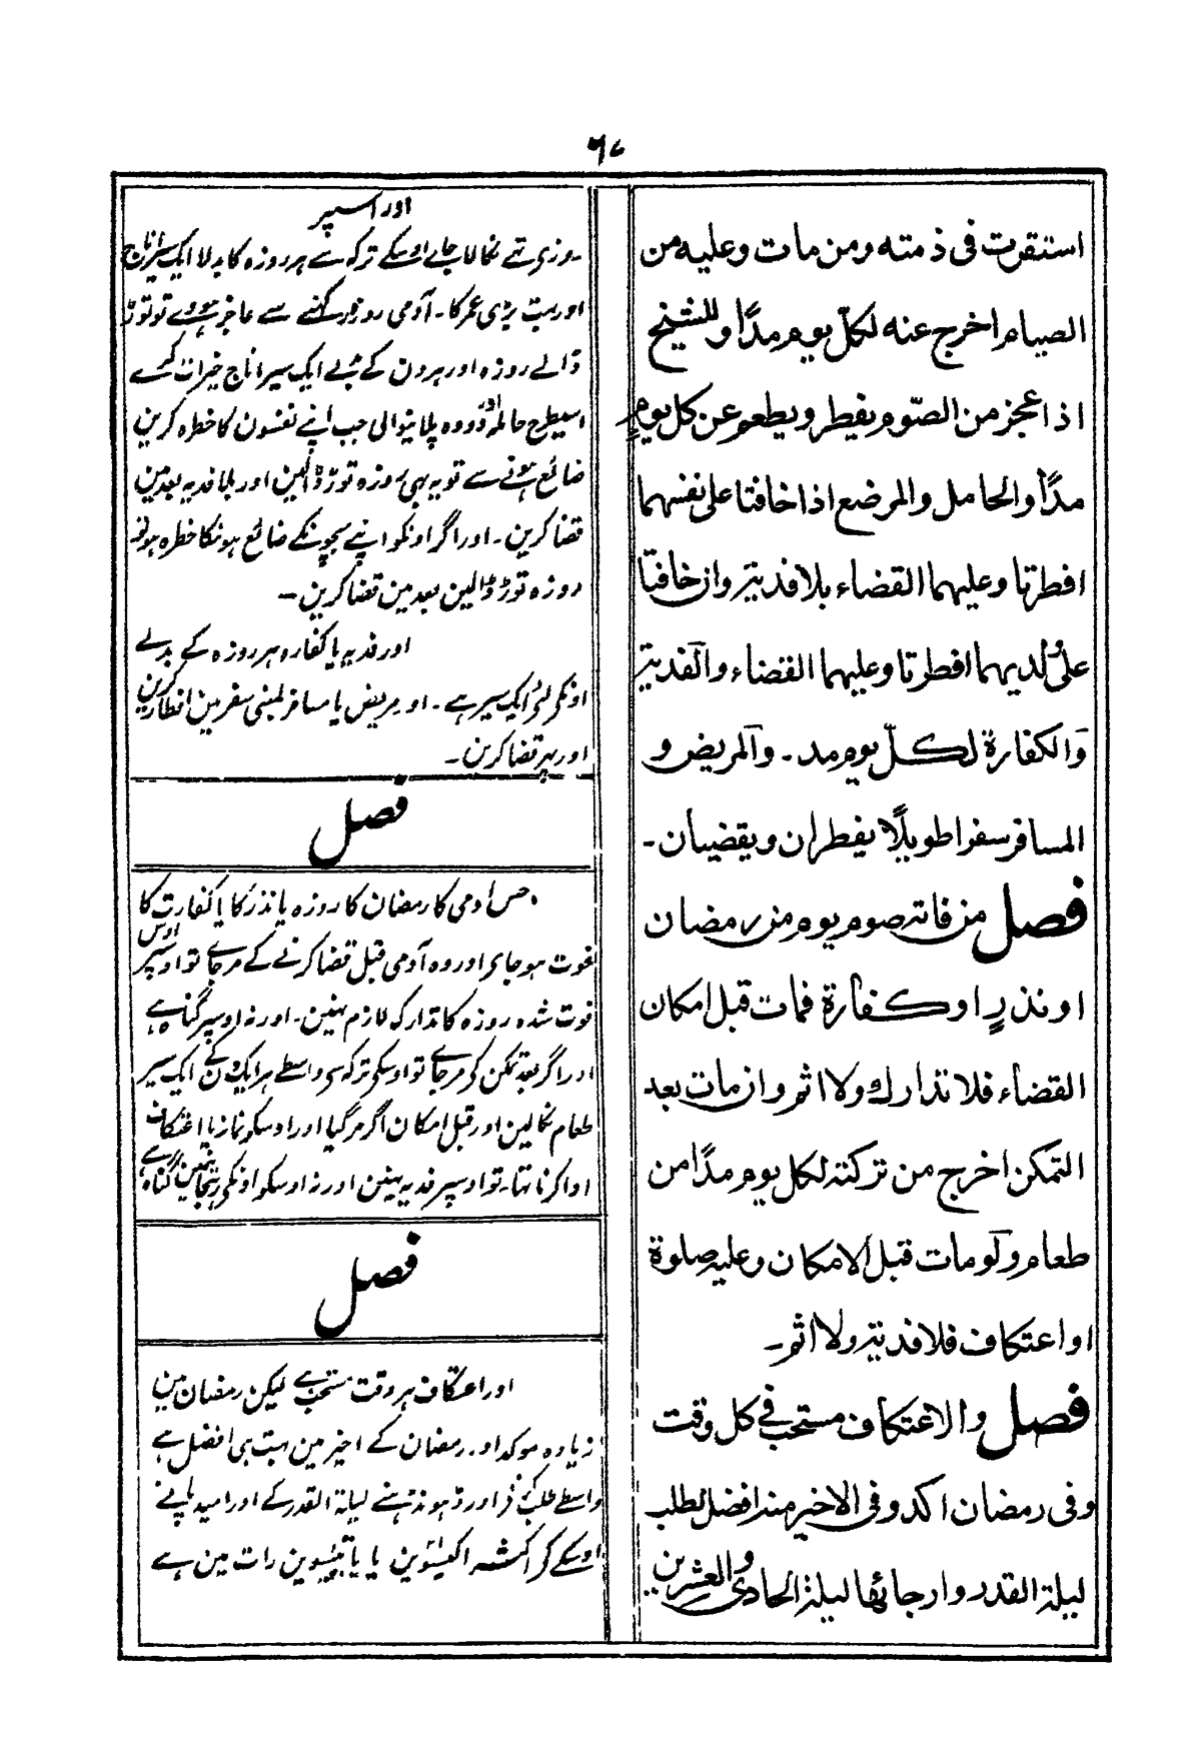 ٦٧
استقرت فی ذمته ومن مات وعلیه من
الصیام اخرج عنه لکل یوم مدًّا وللشیخ
اذا عجز من الصّوم یفطر ویطعم عن کل یومٍ
مدًّا والحامل والمرضع اذا خافتا علی نفسهما
افطرتا وعلیهما القضاء بلا فدیة وان خافتا
علی ولدیهما افطرتا وعلیهما القضاء والفدیة
والکفارة لکلّ یوم مد۔ والمریض و
المسافر سفرا طویلًا یفطران ویقضیان۔
فصل من فاته صوم یوم من رمضان
او نذرٍ او کفارة فمات قبل امکان
القضاء فلا تدارك ولا اثم وان مات بعد
التمکن اخرج من ترکته لکل یوم مدًّا من
طعام ولو مات قبل الامکان وعلیه صلوة
او اعتکاف فلا فدیة ولا اثم۔
فصل والاعتکاف مستحب فی کل وقت
وفی رمضان اکد وفی الاخیر منه افضل لطلب
لیلة القدر وارجائها لیلة الحادی والعشرین
اور اسپر
روزی تھے نکالا جاے اوسکے ترکہ سے ہر روزہ کا بدلا ایک سیر اناج
اور بہت بڑی عمر کا۔ آدمی روزہ رکھنے سے عاجز ہووے تو توڑ
ڈالے روزہ اور ہر دن کے بدلے ایک سیر اناج خیرات کرے
اسیطرح حاملہ اور دودہ پلانیوالی جب اپنے نفسون کا خطرہ کرین
ضائع ہونے سے تو یہ بہی روزہ توڑ ڈالین اور بلا فدیہ بعد مین
قضا کرین۔ اور اگر اونکو اپنے بچونکے ضائع ہونیکا خطرہ ہو تو
روزہ توڑ ڈالین بعد مین قضا کرین۔
اور فدیہ یا کفارہ ہر روزہ کے بدلے
اونکے لئے ایک سیر ہے۔ اور مریض یا مسافر لمبنی سفر مین افطار کرین
اور پہر قضا کرین۔
فصل
جس ادمی کا رمضان کا روزہ یا نذر کا یا کفارت کا
فوت ہو جاے اور وہ آدمی قبل قضا کرنے کے مرجاے تو اوسپر اوس
فوت شدہ روزہ کا تدارک لازم نہین۔ اور نہ اوسپر گناہ ہے
اور اگر بعد تمکن کے مرجاے تو اوسکے ترکہ سے واسطے ہر ایک دن کے ایک سیر
طعام نکالین اور قبل امکان اگر مرگیا اور اوسکو نماز یا اعتکاف
ادا کرنا تہا۔ تو اوسپر فدیہ نہین اور نہ اوسکو گناہ
فصل
اور اعتکاف ہر وقت مستحب ہے لیکن رمضان مین
زیادہ موکد اور رمضان کے اخیر مین بہت ہی افضل ہے
واسطے طلب کرنے اور ڈہونڈہنے لیلة القدر کے اور امید پانے
اوسکے کے اکثر اکیسوین یا بائیسوین رات مین ہے